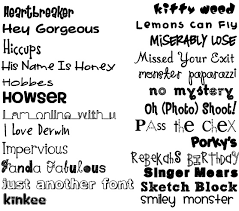 Heartbreaker
Hey Gorgeous
Hiccups
His Name Is Honey
Hobbes
HOWSER
I am online with u
I Love Derwin
Impervious
Janda Fabulous
just another font
kinkee
kitty weed
Lemons Can Fly
MISERABLY LOSE
Missed Your Exit
monster paparazzi
no mystery
Oh (Photo) Shoot!
PAss the chex
Porky's
REBEKAHS BIRTHDAY
Singer Moars
Sketch Block
smiley monster